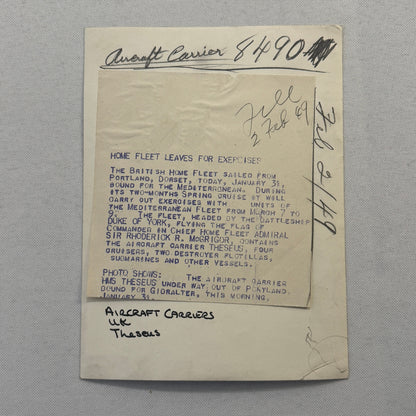 Aircraft Carrier 8490
2 Feb 49
Feb 2/49
HOME FLEET LEAVES FOR EXERCISES
THE BRITISH HOME FLEET SAILED FROM
PORTLAND, DORSET, TODAY, JANUARY 31,
BOUND FOR THE MEDITERRANEAN. DURING
ITS TWO-MONTHS SPRING CRUISE IT WILL
CARRY OUT EXERCISES WITH UNITS OF
THE MEDITERRANEAN FLEET FROM MARCH 7 TO
9. THE FLEET, HEADED BY THE BATTLESHIP
DUKE OF YORK, FLYING THE FLAG OF
COMMANDER IN CHIEF HOME FLEET ADMIRAL
SIR RHODERICK R. MCGRIGOR, CONTAINS
THE AIRCRAFT CARRIER THESEUS, FOUR
CRUISERS, TWO DESTROYER FLOTILLAS,
SUBMARINES AND OTHER VESSELS.
PHOTO SHOWS: THE AIRCRAFT CARRIER
HMS THESEUS UNDER WAY OUT OF PORTLAND,
BOUND FOR GIBRALTER, THIS MORNING,
JANUARY 31.
AIRCRAFT CARRIERS
UK
THESEUS